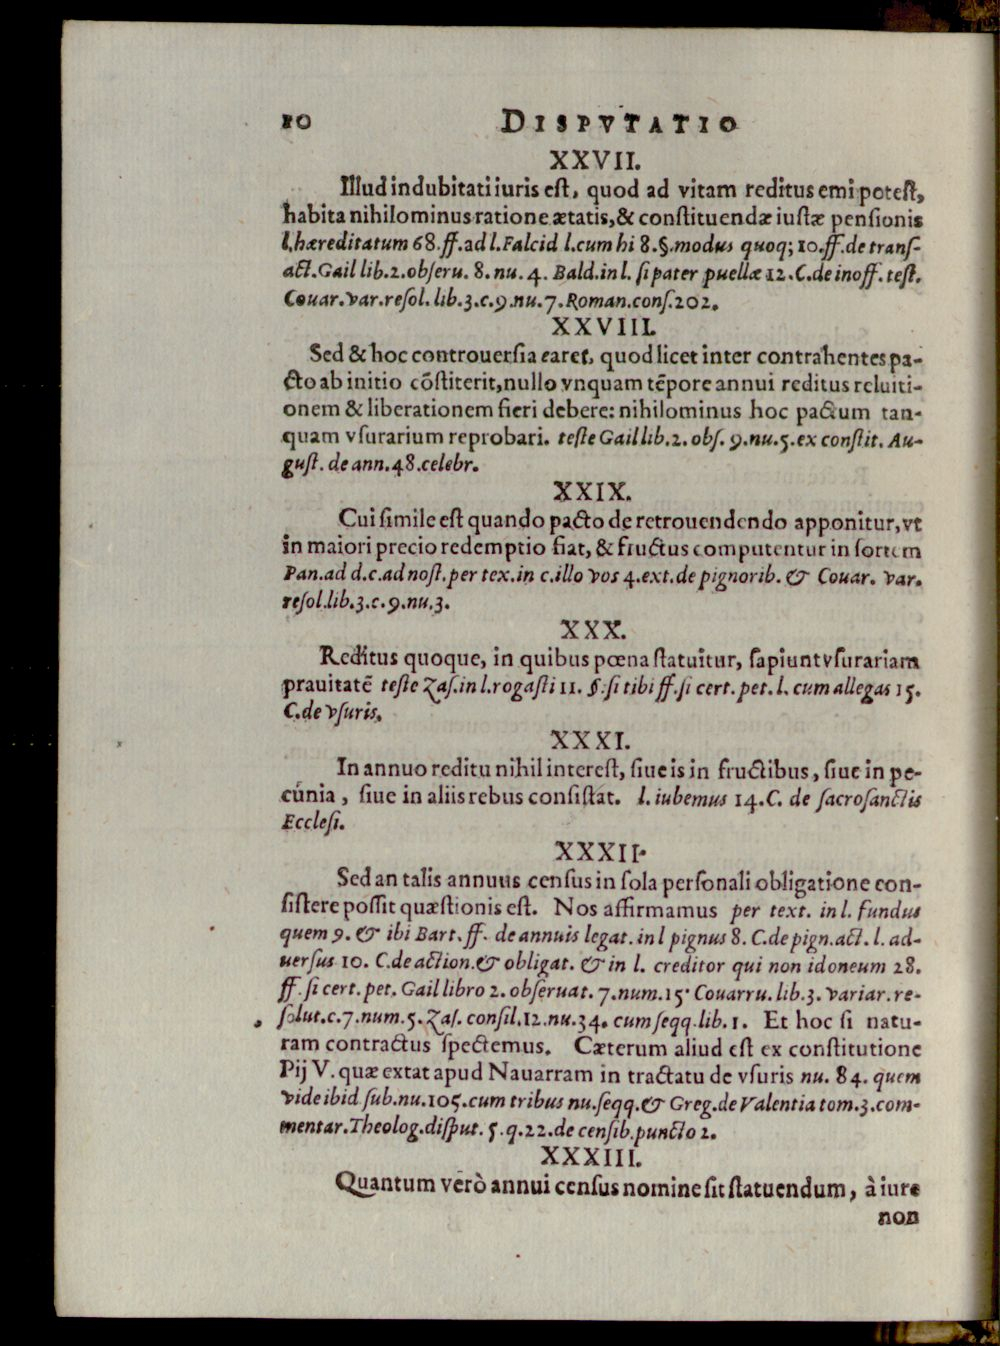 10 DISPVTATIO
XXVII.
Illud indubitati iuris est, quod ad vitam reditus emi potest,
habita nihilominus ratione ætatis, & constituendæ iustæ pensionis
l. hæreditatum 68. ff. ad l. Falcid l. cum hi 8. §. modus quoq; 10. ff. de trans-
act. Gail lib. 2. obseru. 8. nu. 4. Bald. in l. si pater puellæ 12. C. de inoff. test.
Couar. var. resol. lib. 3. c. 9. nu. 7. Roman. cons. 202.
XXVIII.
Sed & hoc controuersia caret, quod licet inter contrahentes pa-
cto ab initio cõstiterit, nullo vnquam tẽpore annui reditus reluiti-
onem & liberationem fieri debere: nihilominus hoc pactum tan-
quam vsurarium reprobari. teste Gail lib. 2. obs. 9. nu. 5. ex constit. Au-
gust. de ann. 48. celebr.
XXIX.
Cui simile est quando pacto de retrouendendo apponitur, vt
in maiori precio redemptio fiat, & fructus computentur in sortem
Pan. ad d. c. ad nost. per tex. in c. illo vos 4. ext. de pignorib. & Couar. var.
resol. lib. 3. c. 9. nu. 3.
XXX.
Reditus quoque, in quibus pœna statuitur, sapiunt vsurariam
prauitatẽ teste Zas. in l. rogasti 11. §. si tibi ff. si cert. pet. l. cum allegas 15.
C. de vsuris.
XXXI.
In annuo reditu nihil interest, siue is in fructibus, siue in pe-
cunia, siue in aliis rebus consistat. l. iubemus 14. C. de sacrosanctis
Ecclesi.
XXXII.
Sed an talis annuus census in sola personali obligatione con-
sistere possit quæstionis est. Nos affirmamus per text. in l. fundus
quem 9. & ibi Bart. ff. de annuis legat. in l pignus 8. C. de pign. act. l. ad-
uersus 10. C. de action. & obligat. & in l. creditor qui non idoneum 28.
ff. si cert. pet. Gail libro 2. obseruat. 7. num. 15. Couarru. lib. 3. variar. re-
solut. c. 7. num. 5. Zas. consil. 12. nu. 34. cum seqq. lib. 1. Et hoc si natu-
ram contractus spectemus. Cæterum aliud est ex constitutione
Pij V. quæ extat apud Nauarram in tractatu de vsuris nu. 84. quem
vide ibid sub. nu. 105. cum tribus nu. seqq. & Greg. de Valentia tom. 3. com-
mentar. Theolog. disput. 5. q. 22. de censib. puncto 2.
XXXIII.
Quantum verò annui census nomine sit statuendum, à iure
non